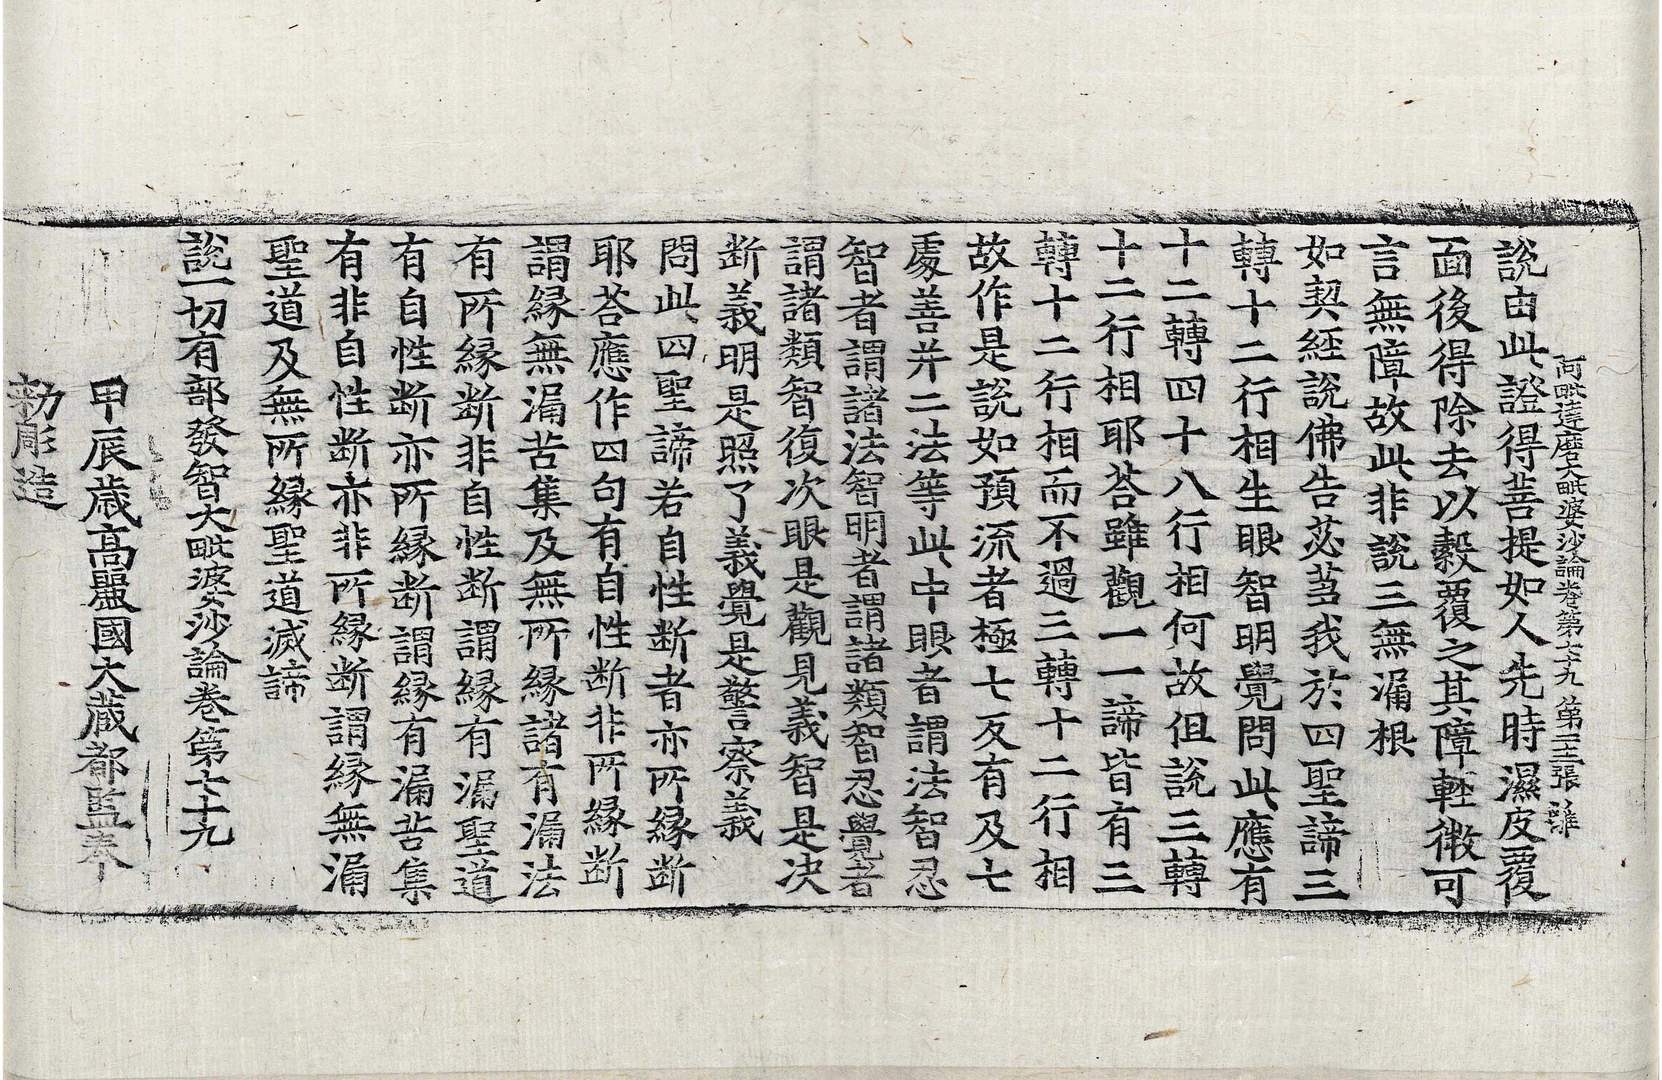 阿毗達磨大毗婆沙論卷第七十九 第二十三張 雖
說由此證得菩提如人先時濕皮覆
面後得除去以縠覆之其障輕微可
言無障故此非說三無漏根
如契經說佛告苾芻我於四聖諦三
轉十二行相生眼智明覺問此應有
十二轉四十八行相何故但說三轉
十二行相耶荅雖觀一一諦皆有三
轉十二行相而不過三轉十二行相
故作是說如預流者極七反有及七
處善并二法等此中眼者謂法智忍
智者謂諸法智明者謂諸類智忍覺者
謂諸類智復次眼是觀見義智是決
断義明是照了義覺是警察義
問此四聖諦若自性断者亦所緣断
耶荅應作四句有自性断非所緣断
謂緣無漏苦集及無所緣諸有漏法
有所緣断非自性断謂緣有漏聖道
有自性断亦所緣断謂緣有漏苦集
有非自性断亦非所緣断謂緣無漏
聖道及無所緣聖道滅諦
說一切有部發智大毗婆沙論卷第七十九
甲辰歲高麗國大藏都監奉
勑彫造